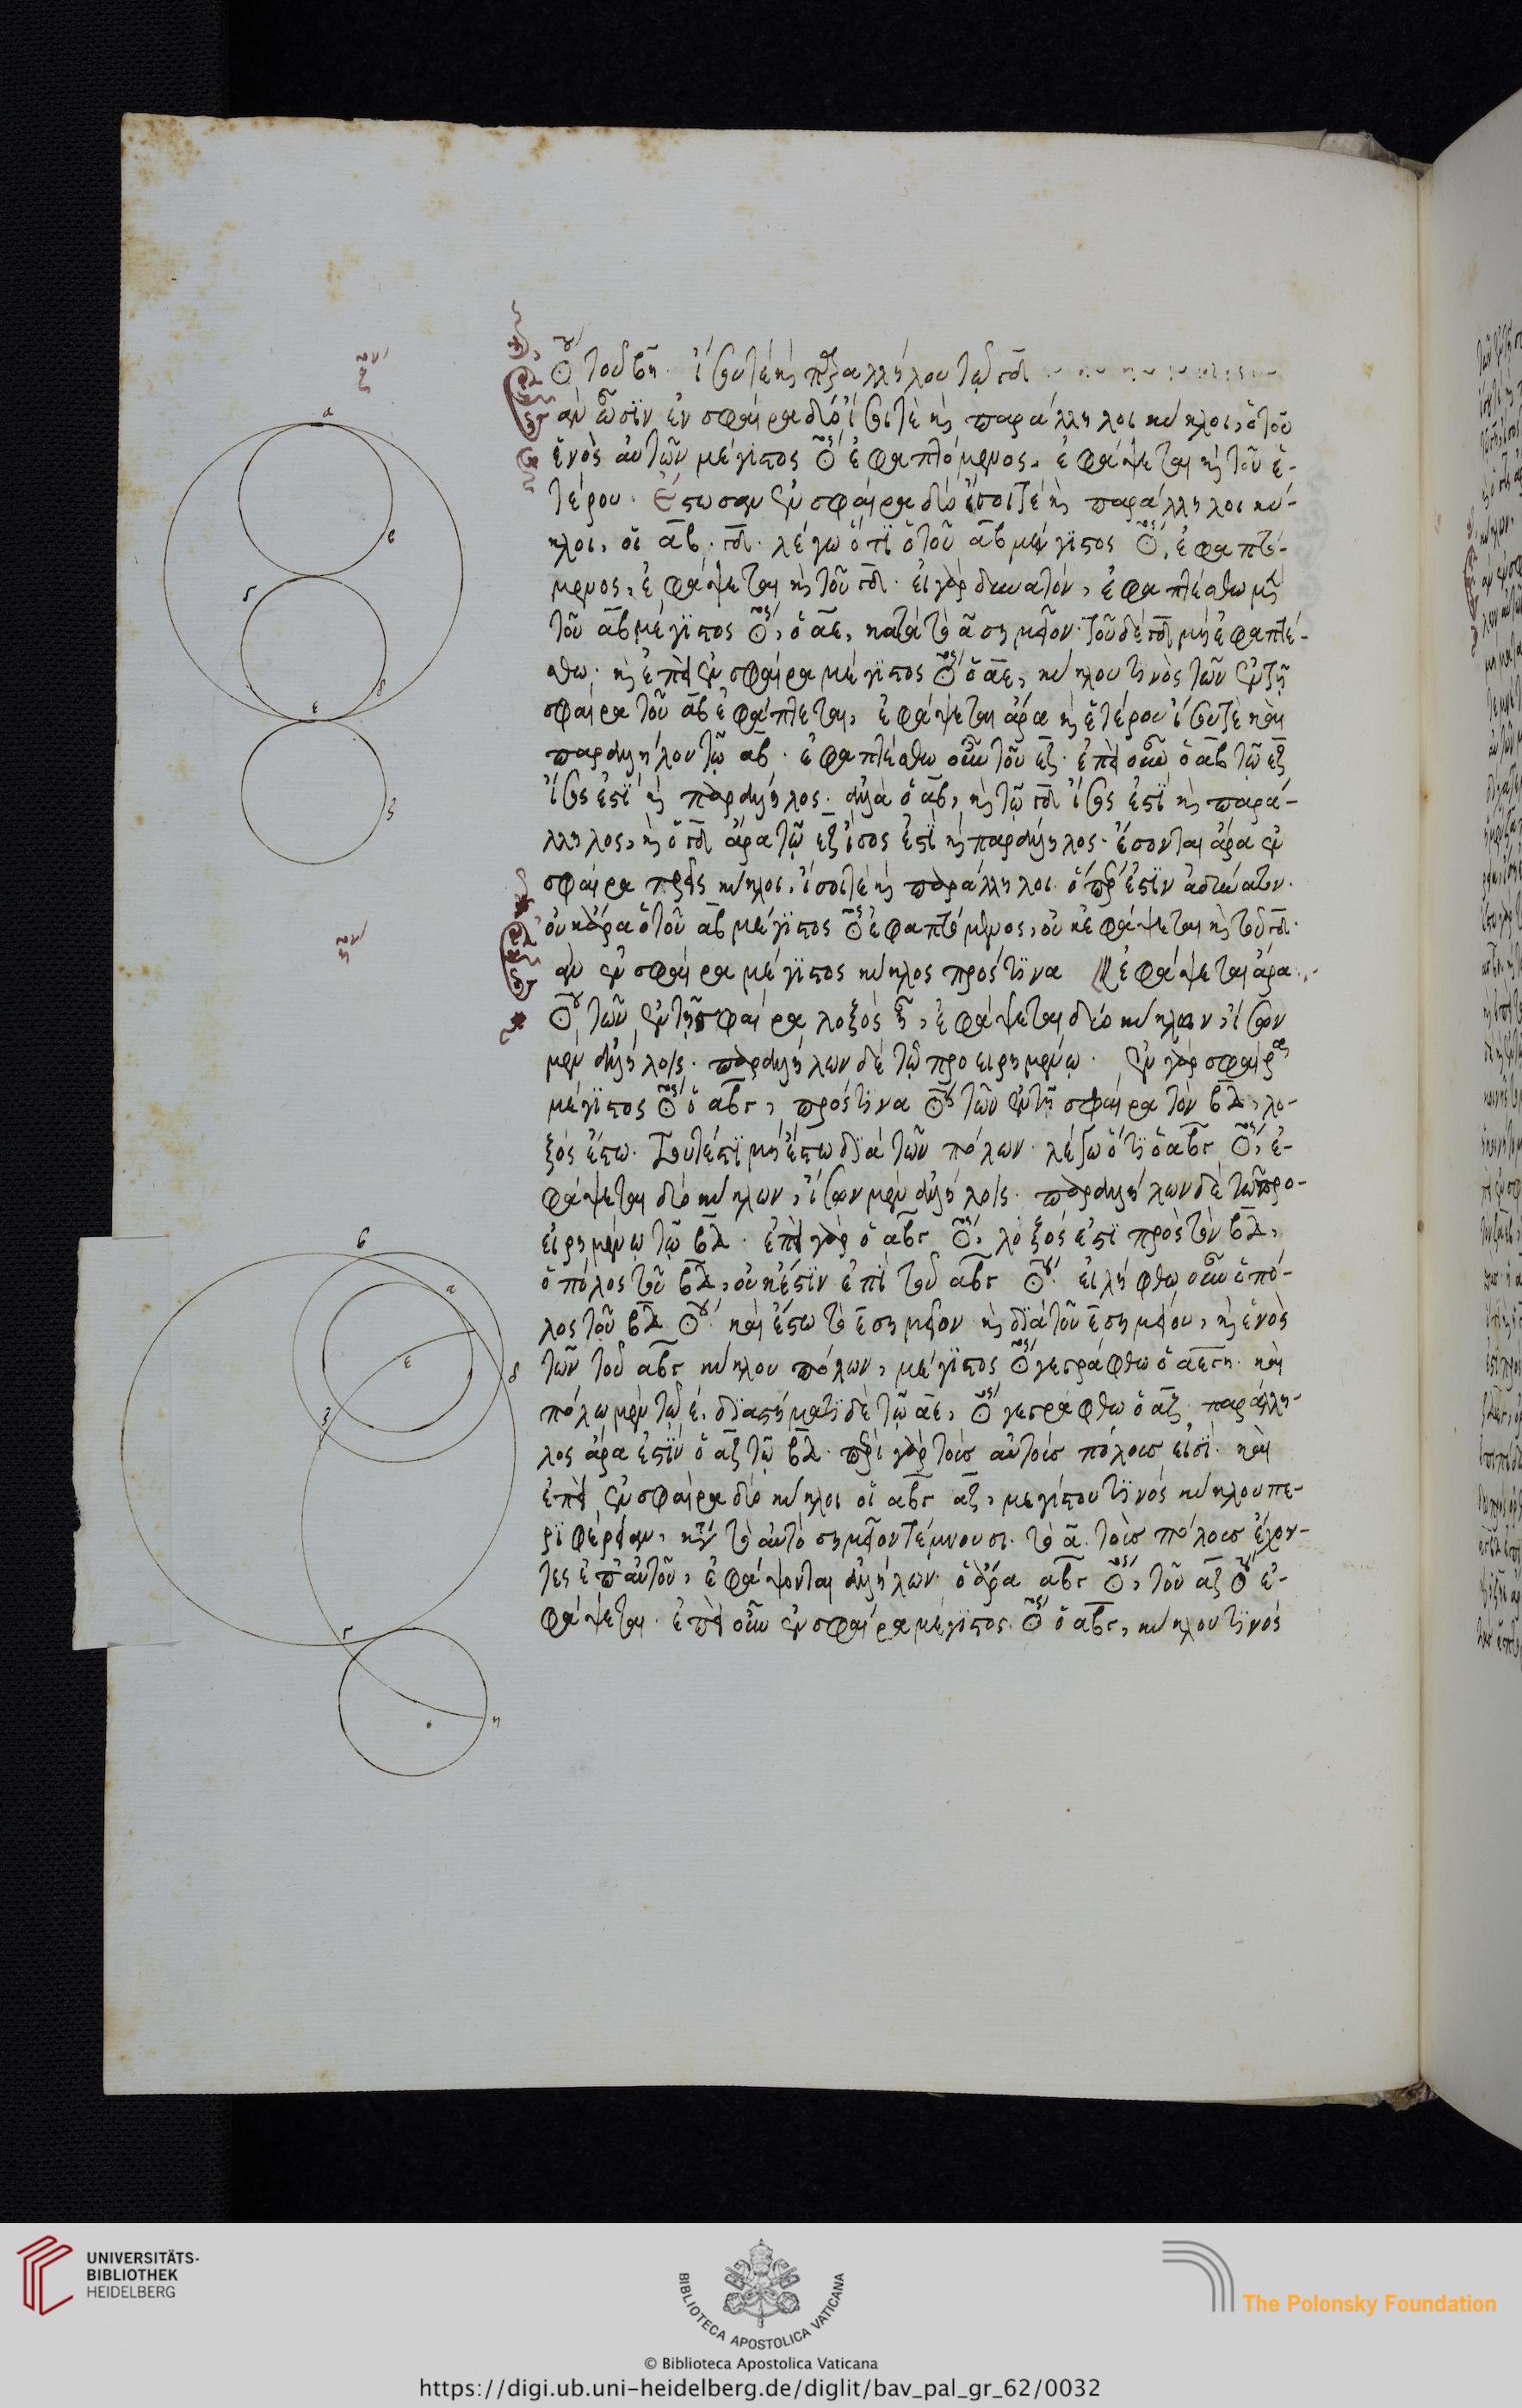 ☉ͧ τοῦ βη. ἴσου τὲ καὶ παραλλήλου τῷ γδ
ἂν ὦσιν ἐν σφαίρα δύο ἴσοι τὲ καὶ παράλληλοι κύκλοι, ὁ τοῦ
ἑνὸς αὐτῶν μέγιστος ☉ς ἐφαπτόμενος, ἐφάψεται καὶ τοῦ ἑ-
τέρου. Ἔστωσαν ἐν σφαίρα δύο ἴσοι τὲ καὶ παράλληλοι κύ-
κλοι, οἱ αβ. γδ. λέγω ὅτι ὁ τοῦ αβ μέγιστος ☉ς, ἐφαπτό-
μενος, ἐφάψεται καὶ τοῦ γδ. εἰ γὰρ δυνατόν, ἐφαπτέσθω μὲν
τοῦ αβ μέγιστος ☉ς, ὁ αε, κατὰ τὸ α σημεῖον. τοῦ δὲ γδ μὴ ἐφαπτέ-
σθω. καὶ ἐπεὶ ἐν σφαίρα μέγιστος ☉ς ὁ αε, κύκλου τινὸς τῶν ἐν τῇ
σφαίρα τοῦ αβ ἐφάπτεται, ἐφάψεται ἄρα καὶ ἑτέρου ἴσου τὲ καὶ
παραλλήλου τῷ αβ. ἐφαπτέσθω οὖν τοῦ εζ. ἐπεὶ οὖν ὁ αβ τῷ εζ
ἴσος ἐστὶ καὶ παράλληλος. ἀλλὰ ὁ αβ, καὶ τῷ γδ ἴσος ἐστὶ καὶ παρά-
λληλος, καὶ ὁ γδ ἄρα τῷ εζ ἴσος ἐστὶ καὶ παράλληλος. ἔσονται ἄρα ἐν
σφαίρα τρεῖς κύκλοι, ἴσοι τὲ καὶ παράλληλοι. ὅπερ ἐστὶν ἀδύνατον.
οὐκ ἄρα ὁ τοῦ αβ μέγιστος ☉ς ἐφαπτόμενος, οὐκ ἐφάψεται καὶ τοῦ γδ.
ἂν ἐν σφαίρα μέγιστος κύκλος πρός τινα ἐφάψεται ἄρα.
☉ν τῶν ἐν τῇ σφαίρα λοξὸς ᾖ, ἐφάψεται δύο κύκλων, ἴσων
μὲν ἀλλήλοις. παραλλήλων δὲ τῷ προειρημένῳ. ἐν γὰρ σφαίρα
μέγιστος ☉ς ὁ αβγ, πρός τινα ☉ν τῶν ἐν τῇ σφαίρα τὸν βδ, λο-
ξὸς ἔστω. τουτέστι μὴ ἔστω διὰ τῶν πόλων. λέγω ὅτι ὁ αβγ ☉ς, ἐ-
φάψεται δύο κύκλων, ἴσων μὲν ἀλλήλοις. παραλλήλων δὲ τῷ προ-
ειρημένῳ τῷ βδ. ἐπεὶ γὰρ ὁ αβγ ☉ς, λοξός ἐστι πρὸς τὸν βδ,
ὁ πόλος τοῦ βδ, οὐκ ἔστιν ἐπὶ τοῦ αβγ ☉ͧ. εἰλήφθω οὖν ὁ πό-
λος τοῦ βδ ☉ͧ. καὶ ἔστω τὸ ε σημεῖον καὶ διὰ τοῦ ε σημείου, καὶ ἑνὸς
τῶν τοῦ αβγ κύκλου πόλων, μέγιστος ☉ς γεγράφθω ὁ αεγη. καὶ
πόλῳ μὲν τῷ ε, διαστήματι δὲ τῷ αε, ☉ς γεγράφθω ὁ αζ. παράλλη-
λος ἄρα ἐστὶν ὁ αζ τῷ βδ. περὶ γὰρ τοὺς αὐτοὺς πόλους εἰσί. καὶ
ἐπεὶ ἐν σφαίρα δύο κύκλοι οἱ αβγ αζ, μεγίστου τινός κύκλου πε-
ριφέρειαν, κατὰ τὸ αὐτὸ σημεῖον τέμνουσι. τὸ α. τοὺς πόλους ἔχον-
τες ἐπ' αὐτοῦ, ἐφάψονται ἀλλήλων. ὁ ἄρα αβγ ☉ς, τοῦ αζ ☉ͧ ἐ-
φάψεται. ἐπεὶ οὖν ἐν σφαίρα μέγιστος ☉ς ὁ αβγ, κύκλου τινός
α
β
γ
δ
ε
ζ
β
α
ε
δ
ζ
γ
η
UNIVERSITÄTS-
BIBLIOTHEK
HEIDELBERG
BIBLIOTECA APOSTOLICA VATICANA
The Polonsky Foundation
© Biblioteca Apostolica Vaticana
https://digi.ub.uni-heidelberg.de/diglit/bav_pal_gr_62/0032